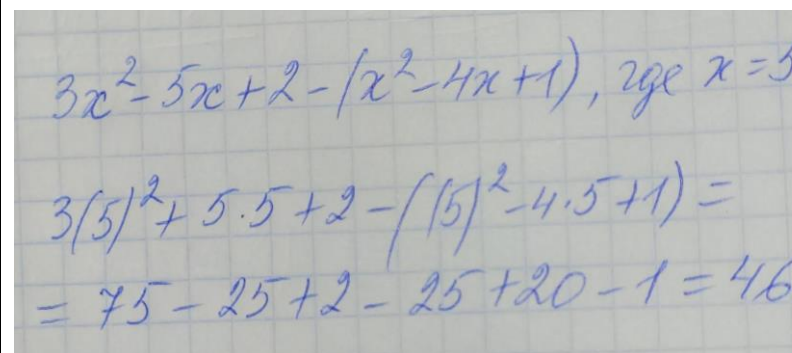 3x² - 5x + 2 - (x² - 4x + 1), где x = 5
3(5)² + 5·5 + 2 - ((5)² - 4·5 + 1) =
= 75 - 25 + 2 - 25 + 20 - 1 = 46